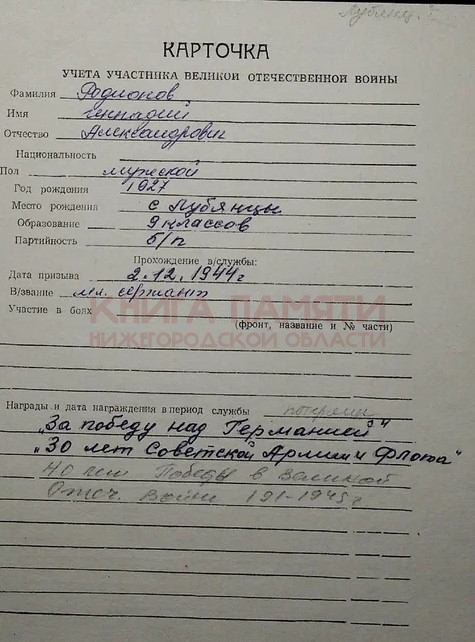 Лубянц.
КАРТОЧКА
УЧЕТА УЧАСТНИКА ВЕЛИКОЙ ОТЕЧЕСТВЕННОЙ ВОЙНЫ
Фамилия Родионов
Имя Геннадий
Отчество Александрович
Национальность
Пол мужской
Год рождения 1927
Место рождения с Лубянцы
Образование 9 классов
Партийность б/п
Прохождение в/службы:
Дата призыва 2.12.1944г
В/звание мл. сержант
КНИГА ПАМЯТИ
Участие в боях
(фронт, название и № части)
НИЖЕГОРОДСКОЙ ОБЛАСТИ
Награды и дата награждения в период службы
"За победу над Германией"
"30 лет Советской Армии и Флота"
40 лет Победы в Великой
Отеч. Войне 191-1945г